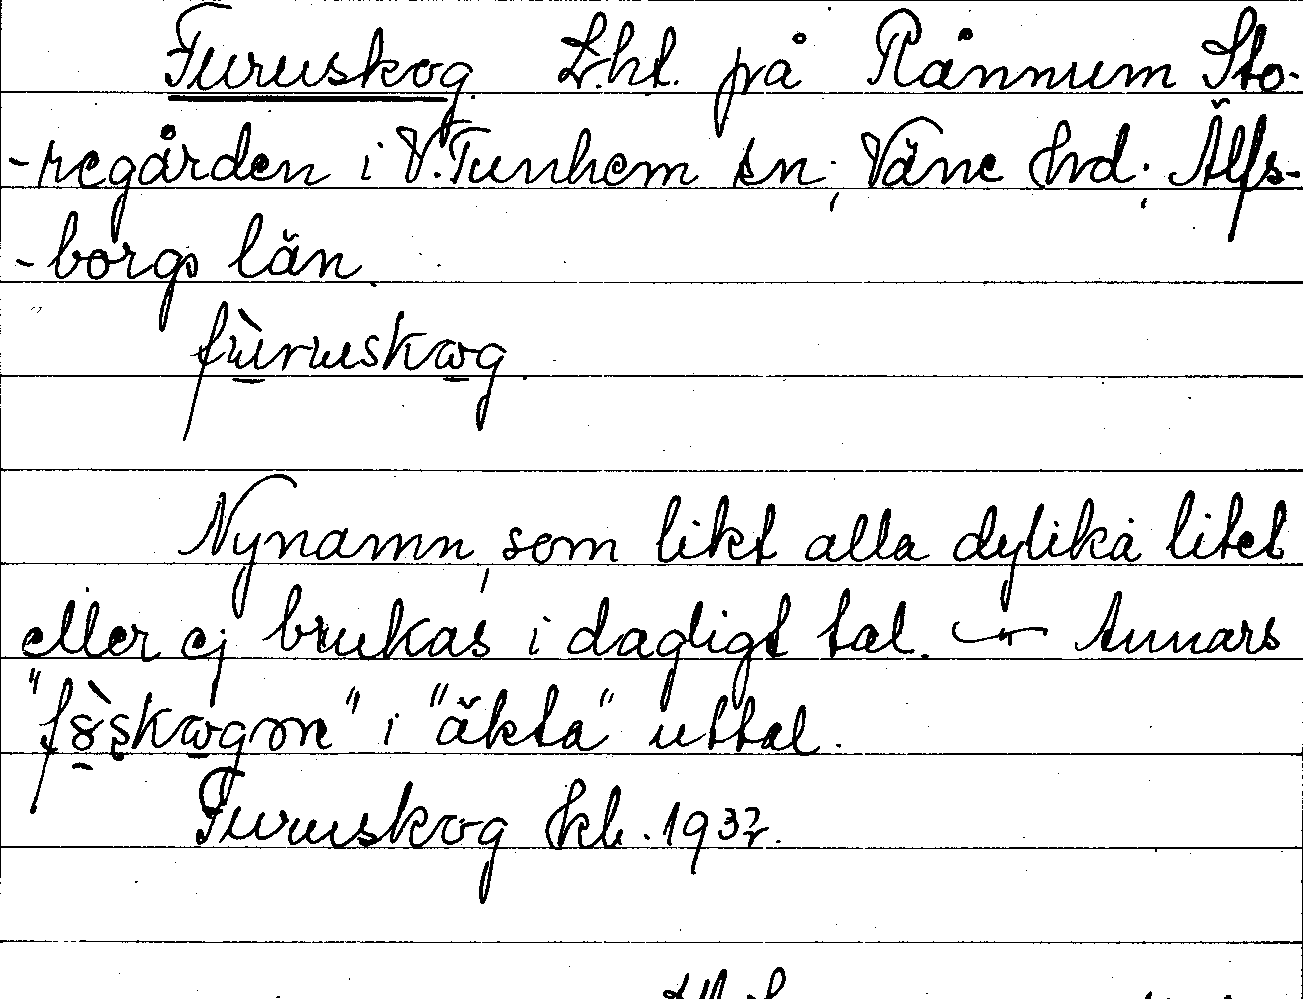 Furuskog Lht. på Rånnum Sto-
-regården i V. Tunhem sn; Väne hrd; Älfs-
-borgs län.
fùruskωg.
Nynamn, som likt alla dylika litet
eller ej brukas i dagligt tal. — Annars
"fòskωgɷn" i "äkta" uttal.
Furuskog kb. 1932.